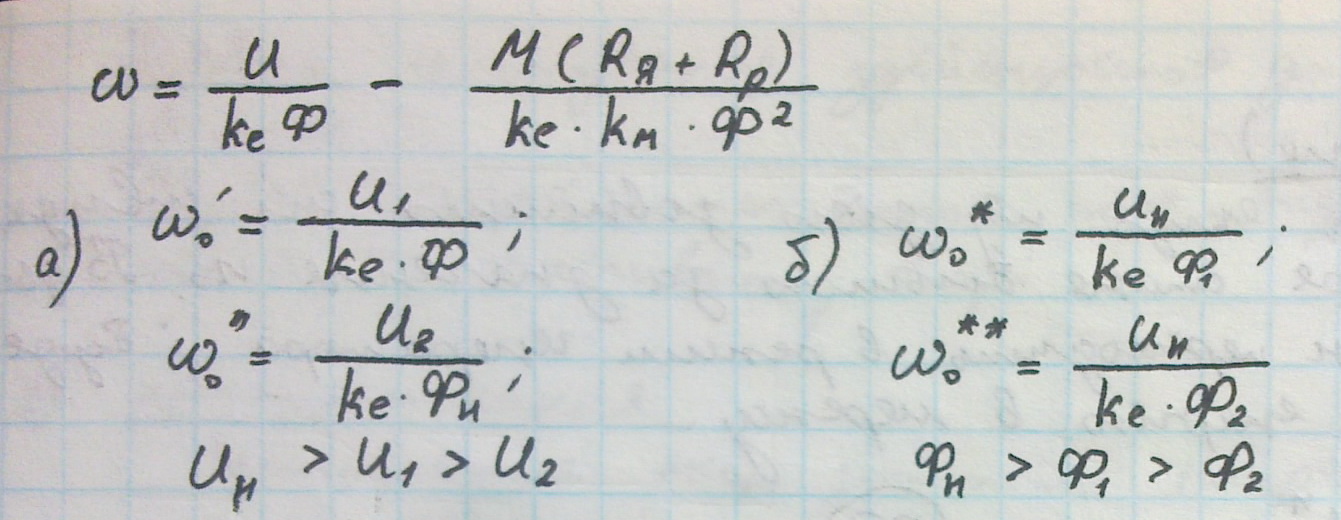 ω = U / (ke Ф) − M (Rя + Rр) / (ke · kм · Ф²)
а) ω₀′ = U₁ / (ke · Ф) ;
ω₀″ = U₂ / (ke · Фн) ;
Uн > U₁ > U₂
б) ω₀* = Uн / (ke Ф₁) ;
ω₀** = Uн / (ke · Ф₂)
Фн > Ф₁ > Ф₂